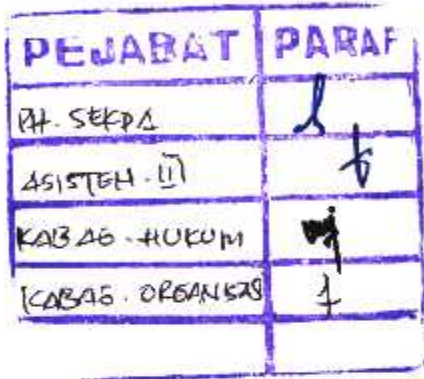 PEJABAT PARAF
PH. SEKDA
ASISTEN. III
KABAG. HUKUM
KABAG. ORGANISAS